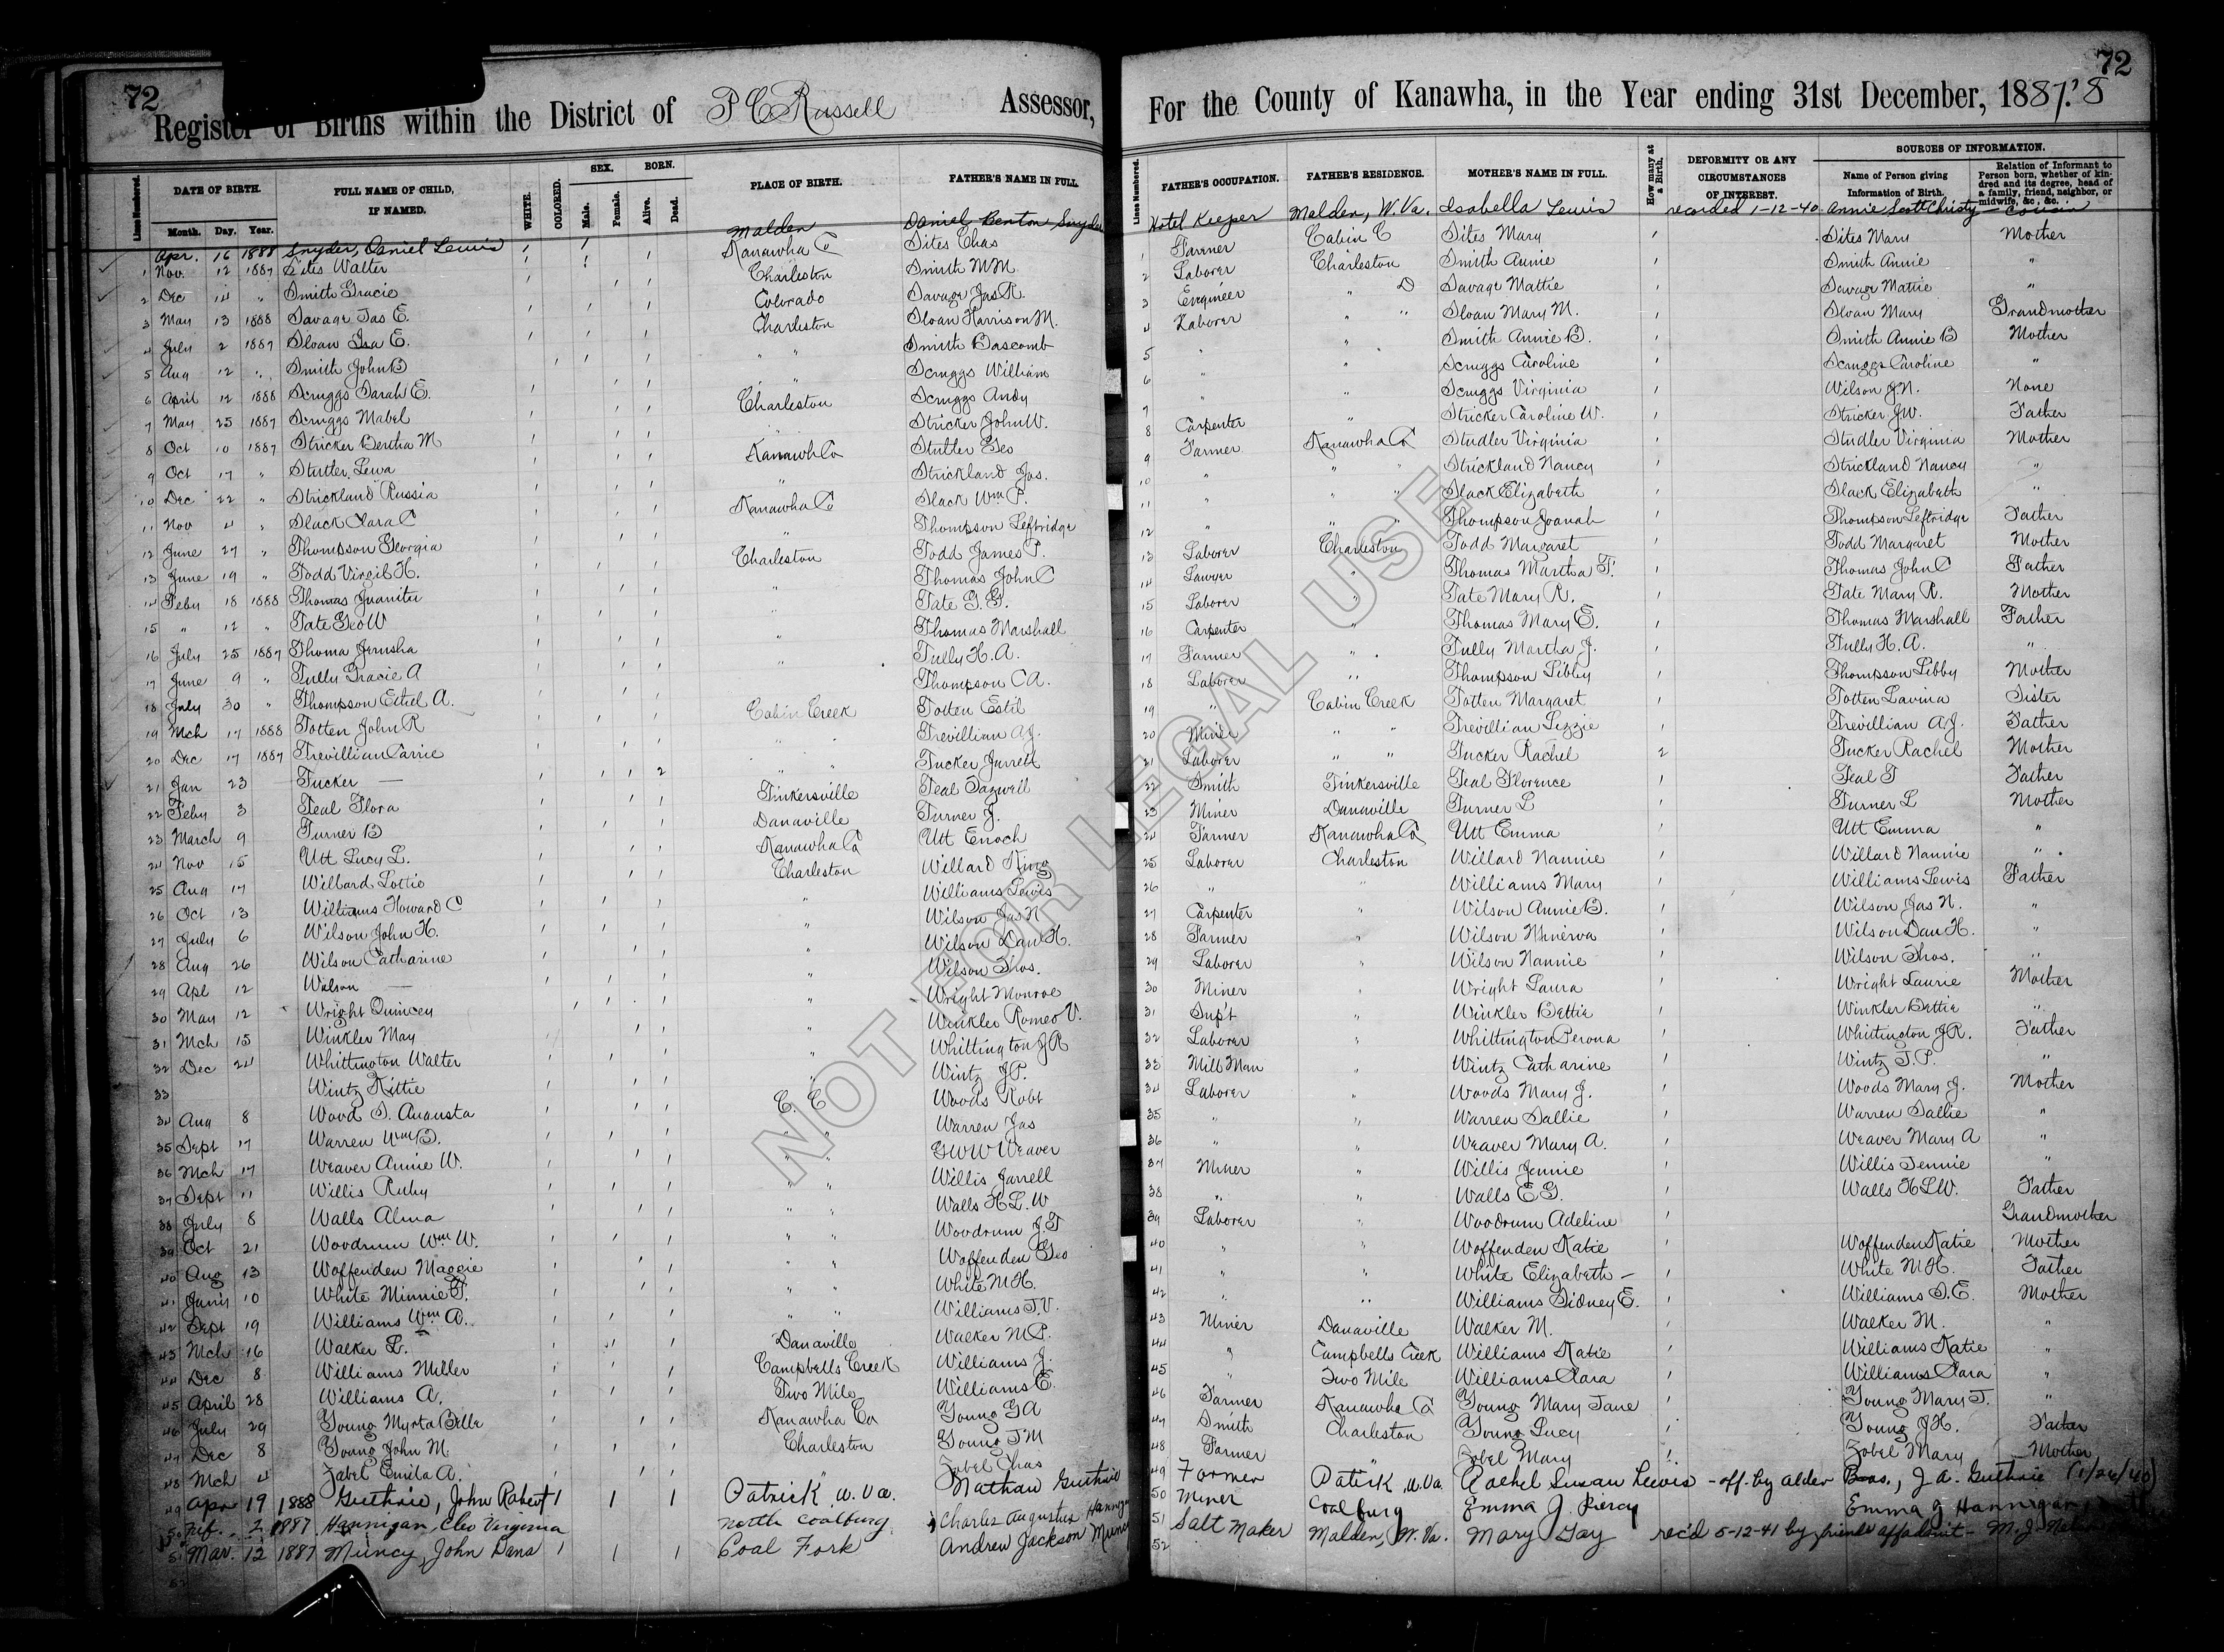 72
Register of Births within the District of P C Russell Assessor,
LINES NUMBERED. DATE OF BIRTH. Month. Day. Year. FULL NAME OF CHILD, IF NAMED. WHITE. COLORED. SEX. Male. Female. BORN. Alive. Dead. PLACE OF BIRTH. FATHER'S NAME IN FULL.
Apr. 16 1888 Snyder, Daniel Lewis Malden Daniel Benton Snyder
1 Nov. 12 1887 Sites Walter Kanawha Co Sites Chas
2 Dec 14 " Smith Gracie Charleston Smith M M
3 May 13 1888 Savage Jas E. Colorado Savage Jas R.
4 July 2 1887 Sloan Isa E. Charleston Sloan Harrison M.
5 Aug 12 " Smith John B " " Smith Bascomb
6 April 12 1888 Scruggs Sarah E. " " Scruggs William
7 May 25 1887 Scruggs Mabel Charleston Scruggs Andy
8 Oct 10 1887 Stricker Bertha M " Stricker John W.
9 Oct 17 " Stutler Lewa Kanawh Co Stutler Geo
10 Dec 22 " Strickland Russia " Strickland Jas.
11 Nov 4 " Slack Clara C Kanawha Co Slack Wm P.
12 June 27 " Thompson Georgia " Thompson Leftridge
13 June 19 " Todd Virgil H. Charleston Todd James P.
14 Feby 18 1888 Thomas Juanita " Thomas John C
15 " 12 " Tate Geo W " Tate G. G.
16 July 25 1887 Thoma Jerusha " Thomas Marshall
17 June 9 " Tully Gracie A " Tully H. A.
18 July 30 " Thompson Ethel A. Thompson C A.
19 Mch 17 1888 Totten John R Cabin Creek Totten Estil
20 Dec 17 1887 Trevillian Carrie " " Trevillian A J.
21 Jan 23 Tucker — 2 " " Tucker Jarrett
22 Feby 3 Teal Flora Tinkersville Teal Tazwell
23 March 9 Turner B Danaville Turner J.
24 Nov 15 Utt Lucy L. Kanawha Co Utt Enoch
25 Aug 17 Willard Lottie Charleston Willard King
26 Oct 13 Williams Howard C " Williams Lewis
27 July 6 Wilson John H. " Wilson Jas N
28 Aug 26 Wilson Catharine " Wilson Dan H.
29 Apl 12 Wilson — " Wilson Thos.
30 May 12 Wright Quincey " Wright Monroe
31 Mch 15 Winkler May " Winkler Romeo V.
32 Dec 24 Whittington Walter " Whittington J R
33 Wintz Kittie " Wintz J P.
34 Aug 8 Wood S. Augusta C. C Woods Robt
35 Sept 17 Warren Wm B. " " Warren Jas
36 Mch 17 Weaver Annie W. " " G W W Weaver
37 Sept 11 Willis Ruby " " Willis Jarrell
38 July 8 Walls Alma " " Walls H L. W
39 Oct 21 Woodrum Wm W. " " Woodrum J. T
40 Aug 13 Woffenden Maggie " " Woffenden Geo
41 10 White Minnie T. " " White M H.
42 Sept 19 Williams Wm A. " " Williams J. V.
43 Mch 16 Walker L. Danaville Walker M P.
44 Dec 8 Williams Miller Campbells Creek Williams J.
45 April 28 Williams A. Two Mile Williams E.
46 July 29 Young Myrta Belle Kanawha Co Young G A
47 Dec 8 Young John M. Charleston Young J M
48 Mch 4 Zabel Emila A. " Zobel Chas
49 Apr 19 1888 Guthrie, John Robert Patrick W. Va. Nathan Guthrie
50 Feb. 2 1887 Hannigan, Cleo Virginia North Coalburg Charles Augustus Hannigan
51 Mar. 12 1887 Muncy, John Dana Coal Fork Andrew Jackson Muncy
52
72
For the County of Kanawha, in the Year ending 31st December, 1887.'8
Lines Numbered. FATHER'S OCCUPATION. FATHER'S RESIDENCE. MOTHER'S NAME IN FULL. How many at a Birth. DEFORMITY OR ANY CIRCUMSTANCES OF INTEREST. SOURCES OF INFORMATION. Name of Person giving Information of Birth. Relation of Informant to Person born, whether of kindred and its degree, head of a family, friend, neighbor, or midwife, &c., &c.
Hotel Keeper Malden, W. Va. Isabella Lewis recorded 1-12-40 Annie Scott Christy — Cousin
1 Farmer Cabin C Sites Mary 1 Sites Mary Mother
2 Laborer Charleston Smith Annie 1 Smith Annie "
3 Engineer " D Savage Mattie 1 Savage Mattie "
4 Laborer " " Sloan Mary M. 1 Sloan Mary Grandmother
5 " " Smith Annie B. 1 Smith Annie B Mother
6 " " Scruggs Caroline 1 Scruggs Caroline "
7 " " Scruggs Virginia 1 Wilson J. N. None
8 Carpenter " Stricker Caroline W. 1 Stricker J W. Father
9 Farmer Kanawha Co Studler Virginia 1 Studler Virginia Mother
10 " " " Strickland Nancy 1 Strickland Nancy "
11 " " " Slack Elizabeth 1 Slack Elizabeth "
12 " " " Thompson Joanah 1 Thompson Leftridge Father
13 Laborer Charleston Todd Margaret 1 Todd Margaret Mother
14 Lawyer " Thomas Martha F. 1 Thomas John C Father
15 Laborer " Tate Mary R. 1 Tate Mary R. Mother
16 Carpenter " Thomas Mary E. 1 Thomas Marshall Father
17 Farmer " Tully Martha J. 1 Tully H. A. "
18 Laborer " Thompson Libby 1 Thompson Libby Mother
19 " Cabin Creek Totten Margaret 1 Totten Lavina Sister
20 Miner " " Trevillian Lizzie 1 Trevillian A J. Father
21 Laborer " " Tucker Rachel 2 Tucker Rachel Mother
22 Smith Tinkersville Teal Florence 1 Teal T Father
23 Miner Danaville Turner L 1 Turner L Mother
24 Farmer Kanawha Co Utt Emma 1 Utt Emma "
25 Laborer Charleston Willard Nannie 1 Willard Nannie "
26 " " Williams Mary 1 Williams Lewis Father
27 Carpenter " Wilson Annie B. 1 Wilson Jas N. "
28 Farmer " Wilson Minerva 1 Wilson Dan H. "
29 Laborer " Wilson Nannie 1 Wilson Thos. "
30 Miner " Wright Laura 1 Wright Laurie Mother
31 Sup't " Winkler Bettie 1 Winkler Bettie "
32 Laborer " Whittington Perona 1 Whitington J R. Father
33 Mill Man " Wintz Catharine 1 Wintz J. P. "
34 Laborer " Woods Mary J. 1 Woods Mary J. Mother
35 " " Warren Sallie 1 Warren Sallie "
36 " " Weaver Mary A. 1 Weaver Mary A "
37 Miner " Willis Jennie 1 Willis Jennie "
38 " " Walls E G. 1 Walls H L W. Father
39 Laborer " Woodrum Adeline 1 Grandmother
40 " " Woffenden Katie 1 Woffenden Katie Mother
41 " " White Elizabeth — 1 White M H. Father
42 " " Williams Sidney E. 1 Williams S. E. Mother
43 Miner Danaville Walker M. 1 Walker M. "
44 " Campbells Creek Williams Katie 1 Williams Katie "
45 " Two Mile Williams Clara 1 Williams Clara "
46 Farmer Kanawha Co Young Mary Jane 1 Young Mary J. "
47 Smith Charleston Young Lucy 1 Young J H. Father
48 Farmer " Zobel Mary 1 Zobel Mary Mother
49 Farmer Patrick W. Va. Rachel Susan Lewis - off. by alder Bros., J. A. Guthrie (1/26/40)
50 Miner Coalburg Emma J. Piercy Emma J Hannigan,
51 Salt Maker Malden, W. Va. Mary Day rec'd 5-12-41 by friends affadavit - M. J.
52
NOT FOR LEGAL USE